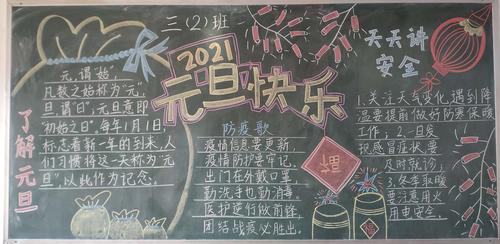 三（2）班
2021
元旦快乐
了解元旦
元，谓始，
凡数之始称为“元，
旦，谓“日”；元旦意即
“初始之日”。每年1月1日，
标志着新一年的到来，人
们习惯将这一天称为“元
旦”，以此作为记念。
防疫歌
疫情信息要更新，
疫情防护要牢记，
出门在外戴口罩，
勤洗手也勤消毒。
医护逆行做前锋，
团结战疫必胜出。
福
天天讲
安全
1.关注天气变化，遇到降
温要提前做好防寒保暖
工作；2.一旦发
现感冒症状要
及时就诊；
3.冬季取暖
要注意用火
用电安全。